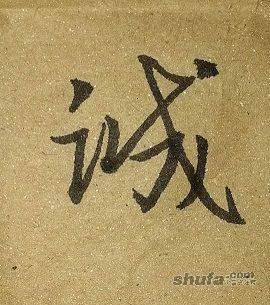 诚
shufa.com